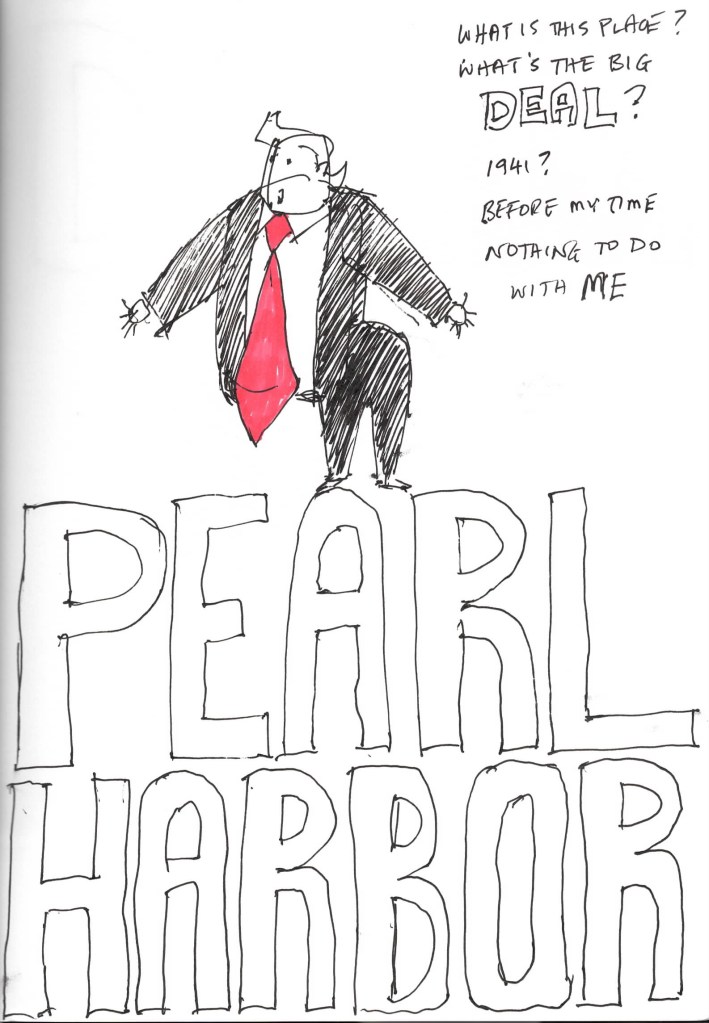 WHAT IS THIS PLACE?
WHAT'S THE BIG
DEAL?
1941?
BEFORE MY TIME
NOTHING TO DO
WITH ME
PEARL
HARBOR